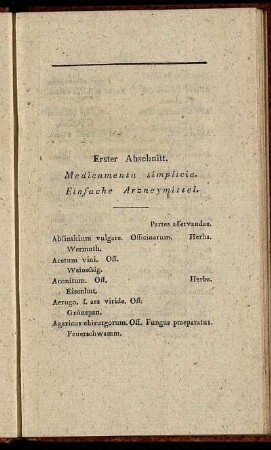 Erster Abschnitt.
Medicamenta simplicia.
Einfache Arzneymittel.
Partes asservandae.
Absinthium vulgare. Officinarum. Herba.
Wermuth.
Acetum vini. Off.
Weinessig.
Aconitum. Off. Herba.
Eisenhut.
Aerugo, s. aes viride. Off.
Grünspan.
Agaricus chirurgorum. Off. Fungus praeparatus.
Feuerschwamm.